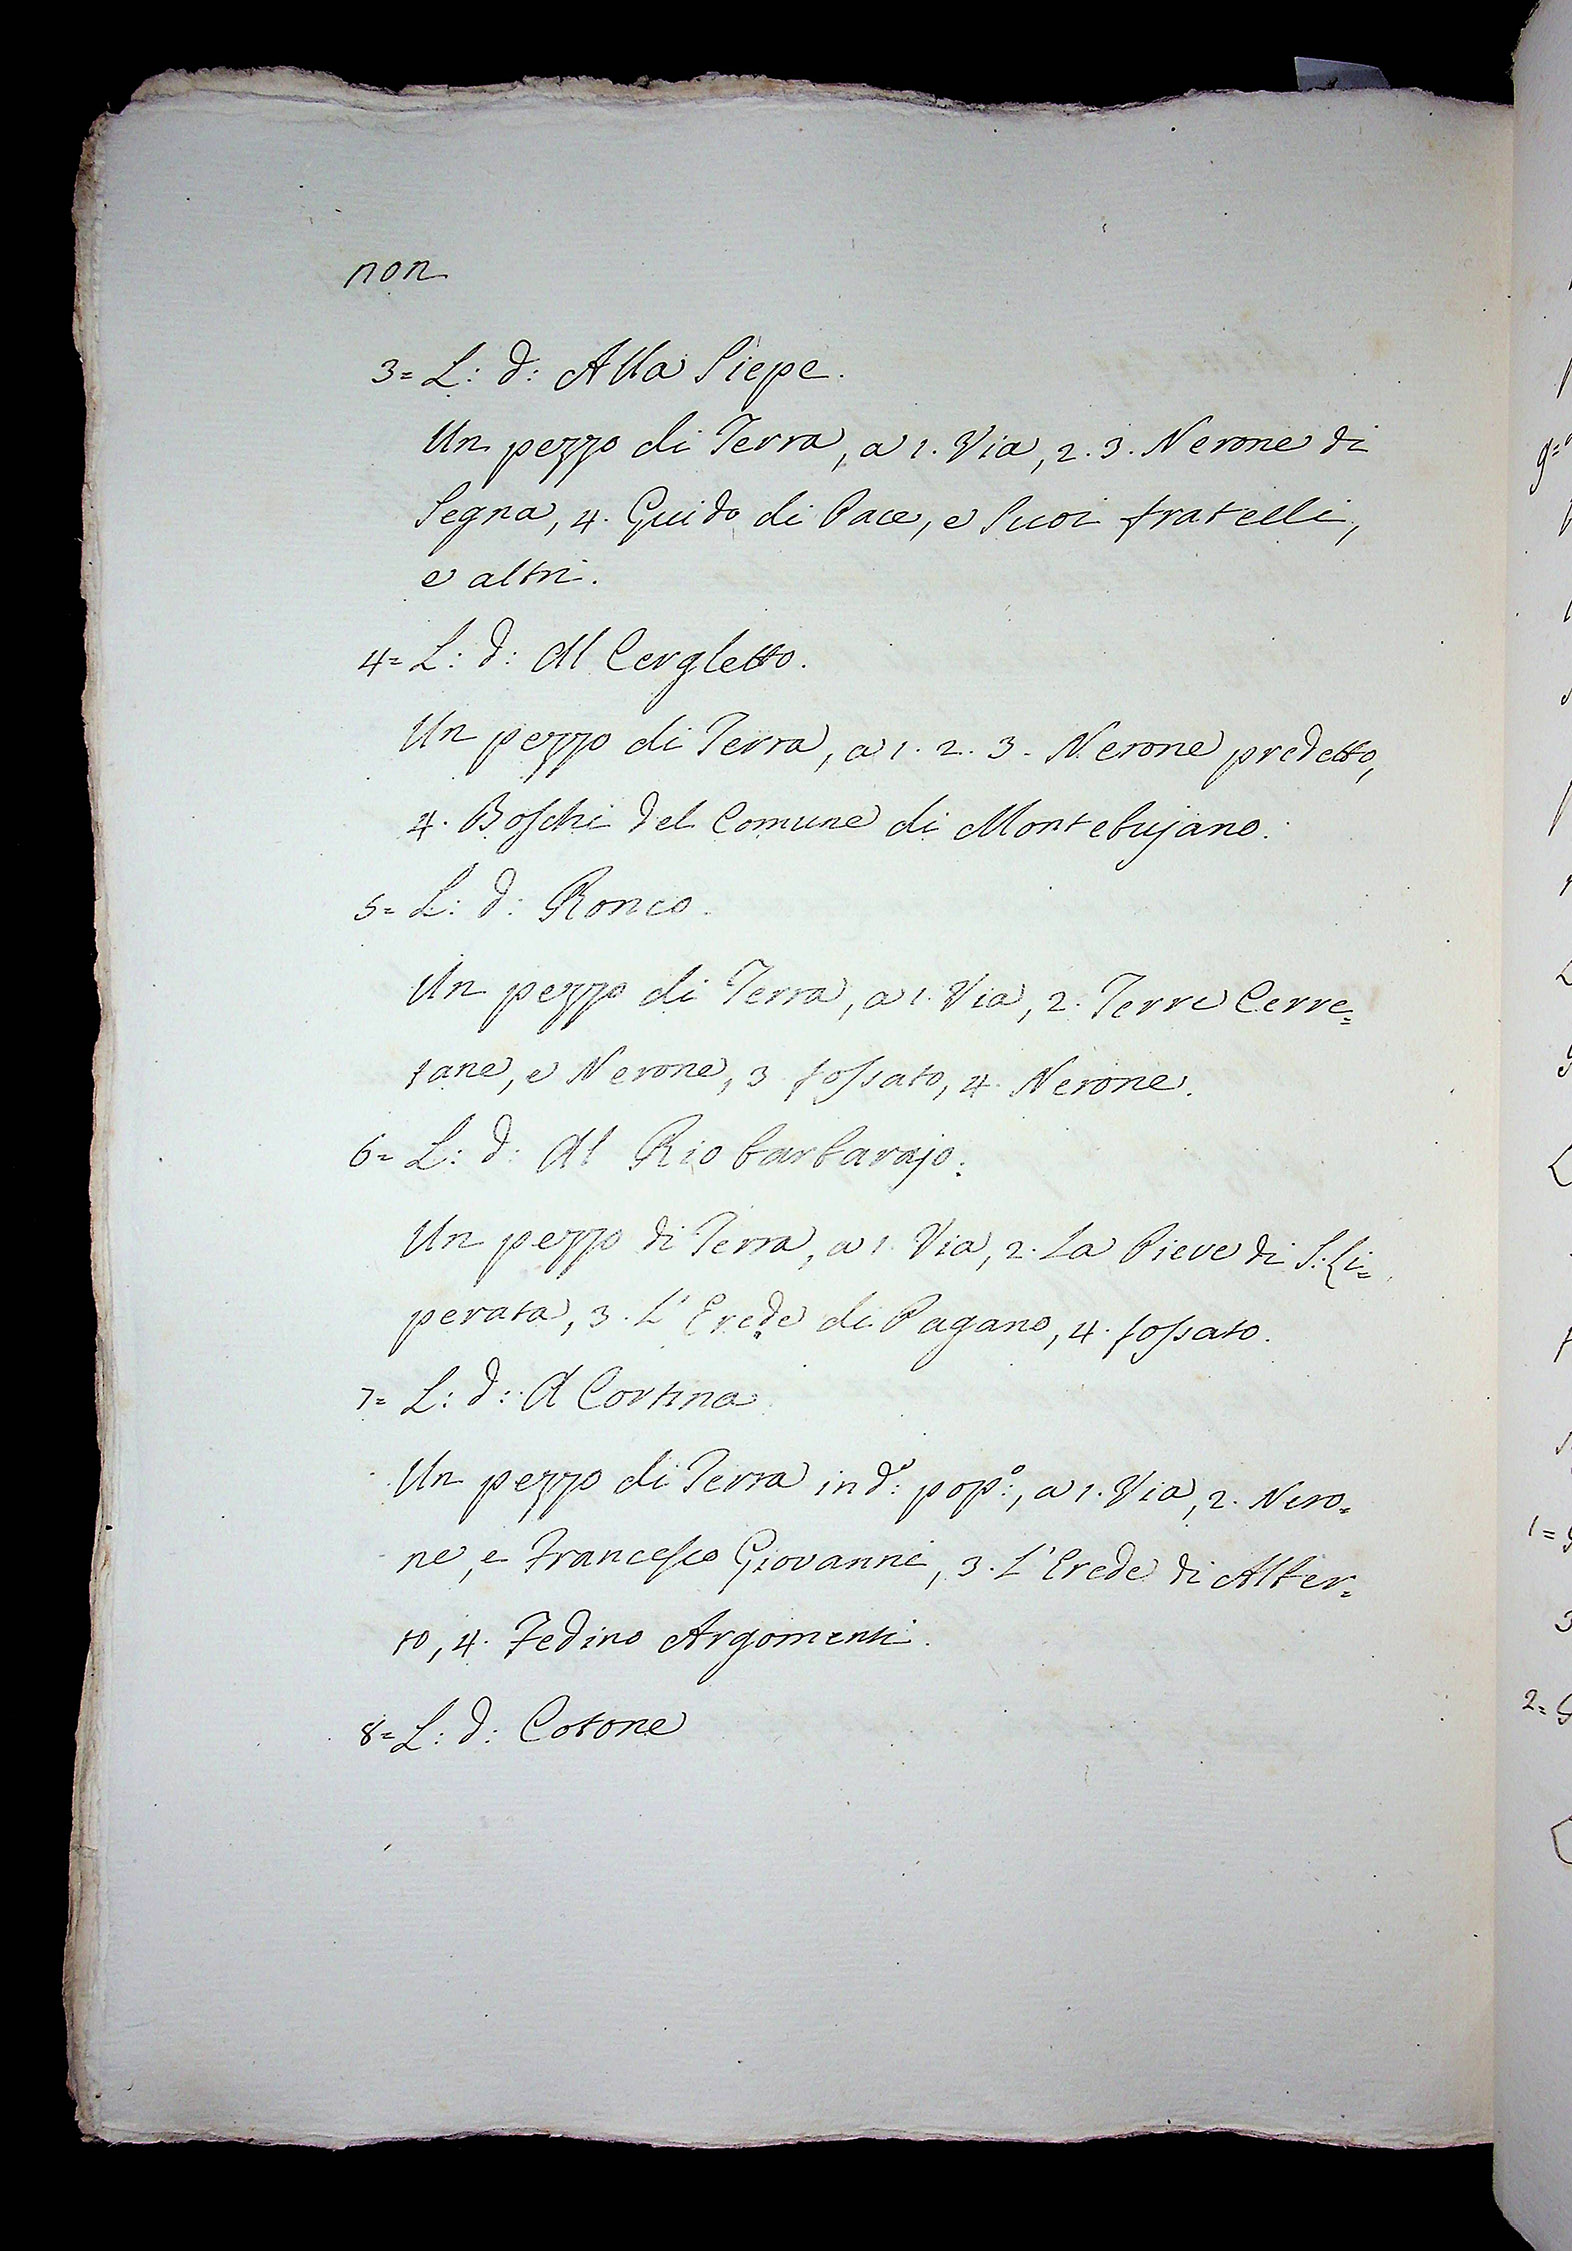 non
3= L: d: Alla Siepe.
Un pezzo di Terra, a 1. Via, 2. 3. Nerone di
Segna, 4. Guido di Pace, e Suoi fratelli,
e altri.
4= L: d: Al Cergletto.
Un pezzo di Terra, a 1. 2. 3. Nerone predetto,
4. Boschi del Comune di Montebujano.
5= L: d: Ronco.
Un pezzo di Terra, a 1. Via, 2. Terre Cerre=
tane, e Nerone, 3 fossato, 4. Nerone.
6= L: d: Al Rio barbarajo.
Un pezzo di Terra, a 1. Via, 2. La Pieve di S: Li=
perata, 3. L'Erede di Pagano, 4. fossato.
7= L: d: A Cortina
Un pezzo di Terra in d:º pop:º, a 1. Via, 2. Nero=
ne, e Francesco Giovanni, 3. L'Erede di Alber=
to, 4. Fedino Argomenti.
8= L: d: Cotone